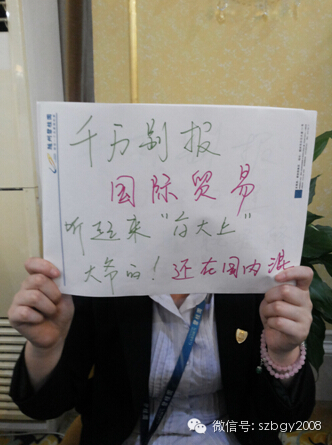 千万别报
国际贸易
听起来“高大上”
大爷的！还在国内混
微信号: szbgy2008